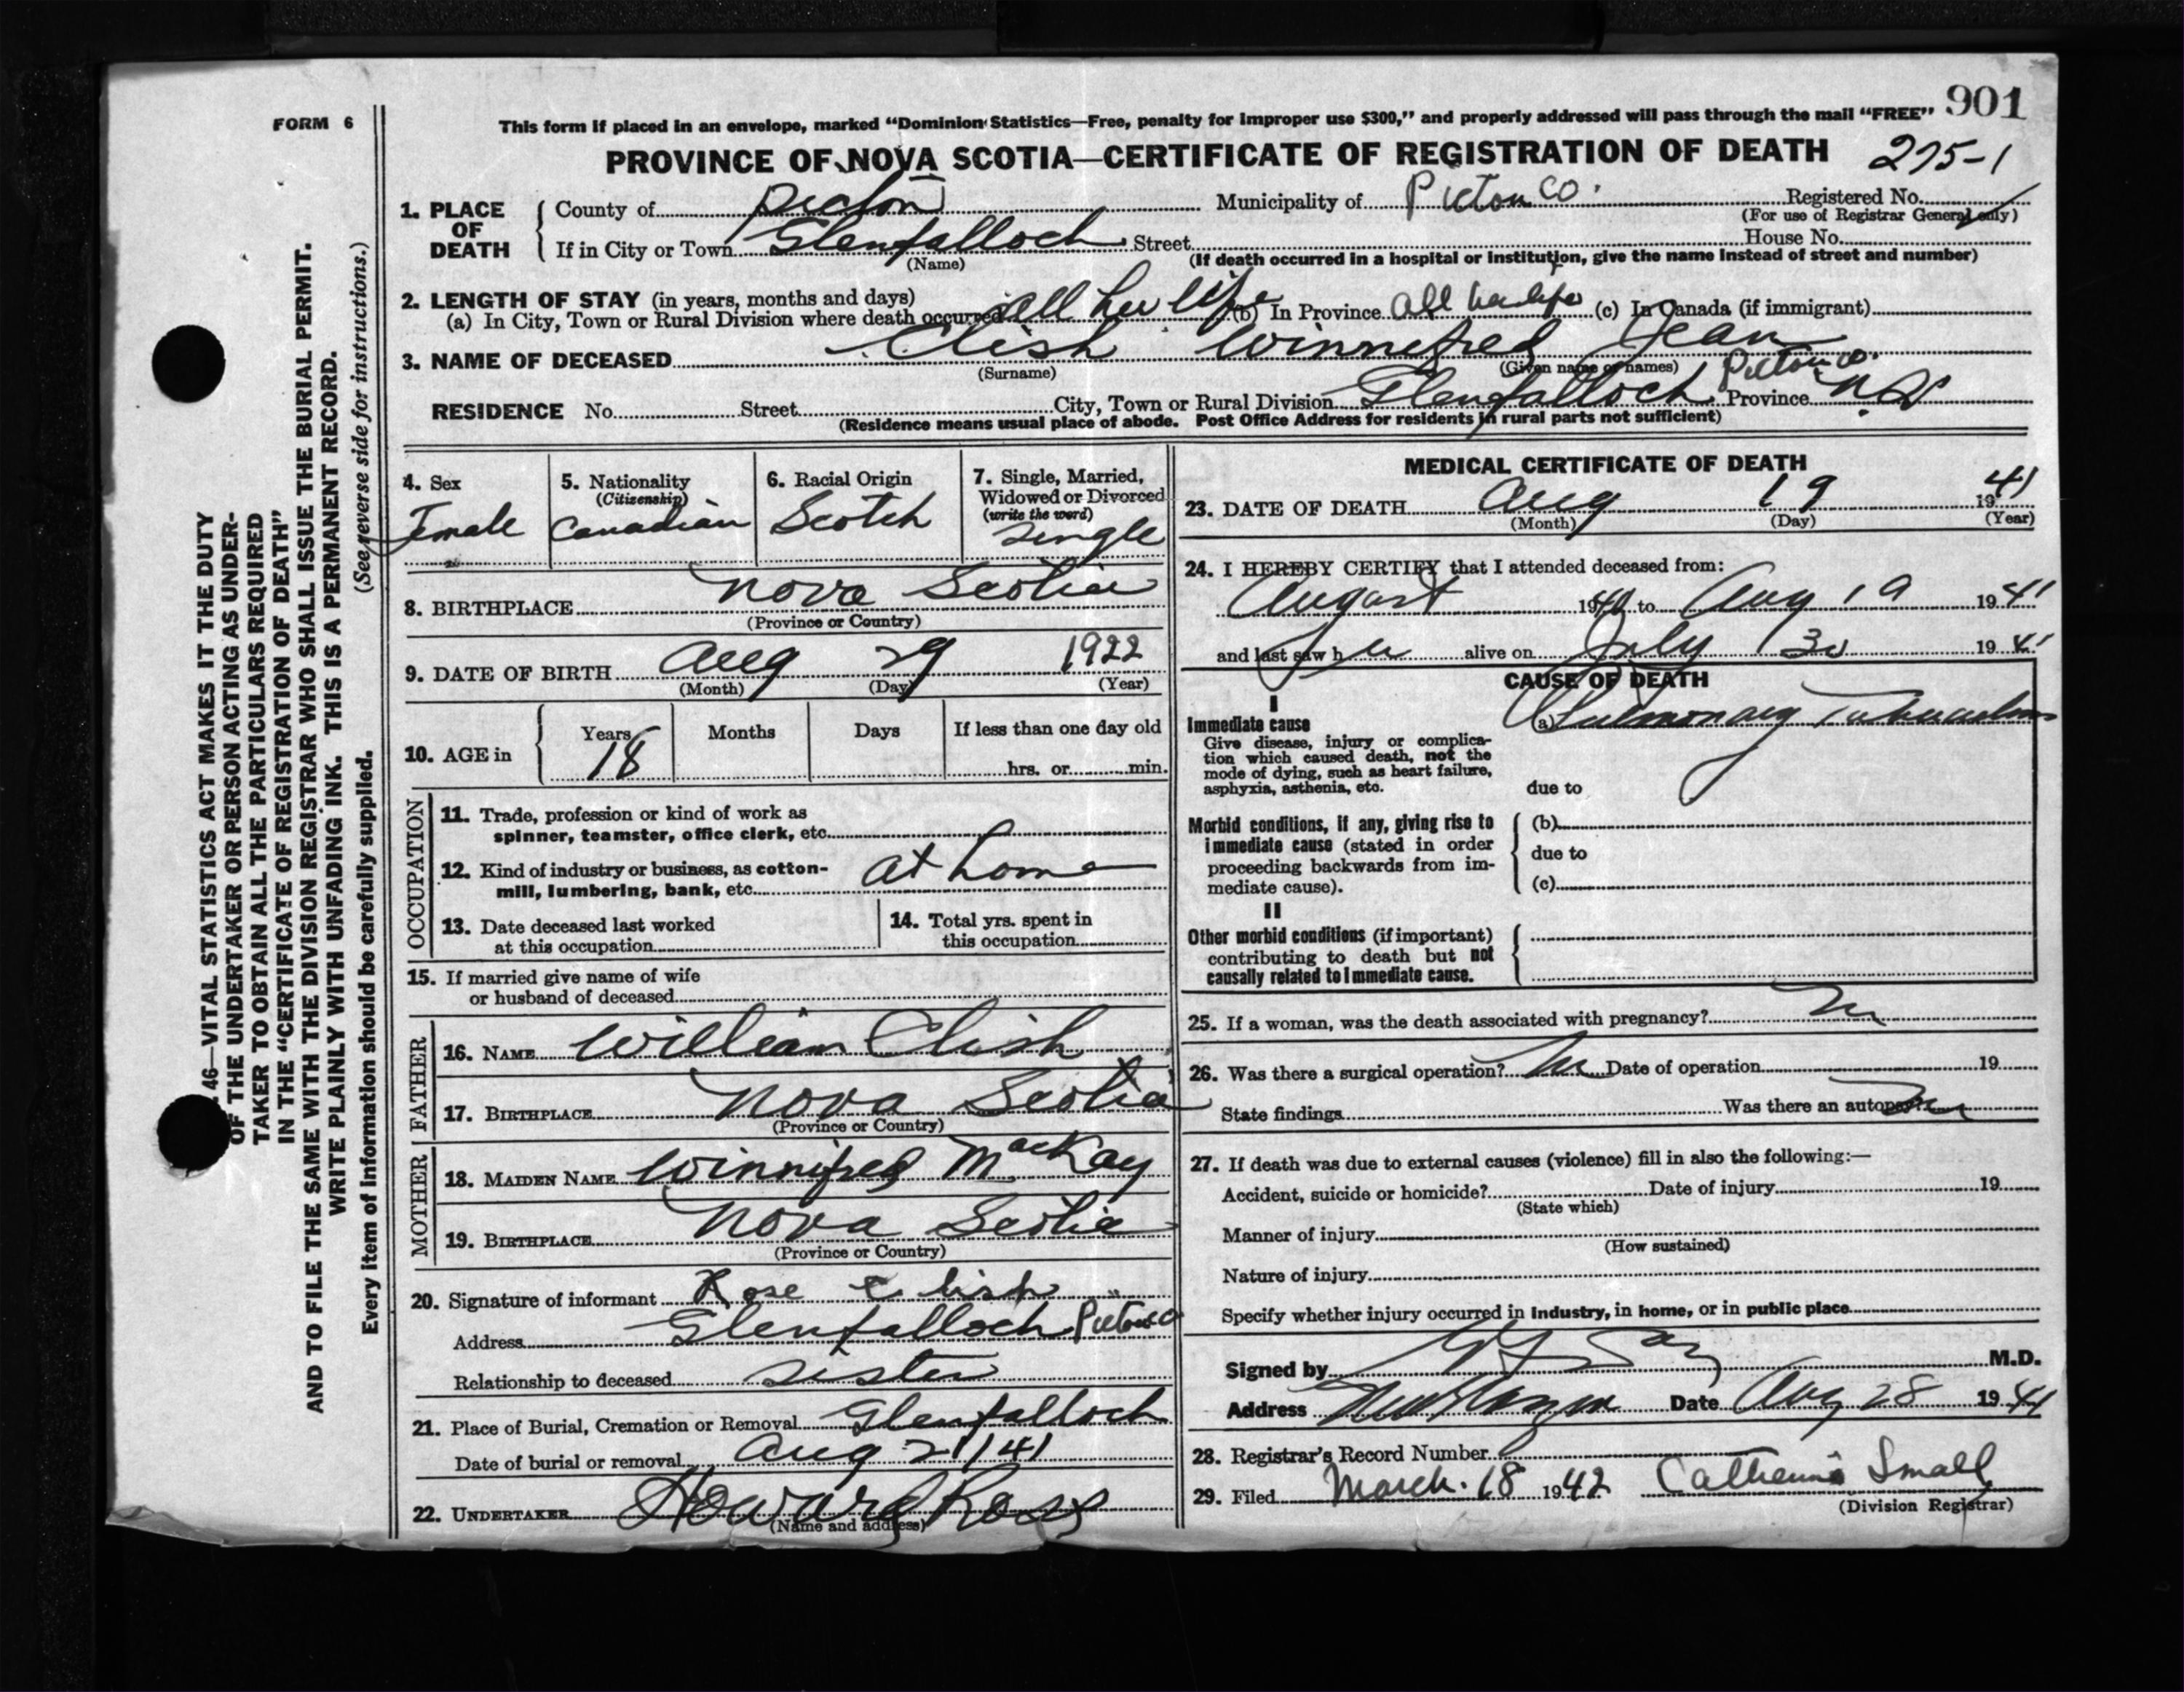 901
FORM 6
This form if placed in an envelope, marked “Dominion Statistics—Free, penalty for improper use $300,” and properly addressed will pass through the mail “FREE”
PROVINCE OF NOVA SCOTIA—CERTIFICATE OF REGISTRATION OF DEATH 275-1
1. PLACE OF DEATH
County of Pictou Municipality of Pictou Co. Registered No.
(For use of Registrar General only)
If in City or Town Glenfalloch Street House No.
(Name) (If death occurred in a hospital or institution, give the name instead of street and number)
2. LENGTH OF STAY (in years, months and days)
(a) In City, Town or Rural Division where death occurred All her life (b) In Province All her life (c) In Canada (if immigrant)
3. NAME OF DECEASED Clish Winnifred Jean
(Surname) (Given name or names)
RESIDENCE No. Street City, Town or Rural Division Glenfalloch Pictou Co. Province N.S
(Residence means usual place of abode. Post Office Address for residents in rural parts not sufficient)
4. Sex
Female
5. Nationality
(Citizenship)
Canadian
6. Racial Origin
Scotch
7. Single, Married,
Widowed or Divorced
(write the word)
Single
8. BIRTHPLACE Nova Scotia
(Province or Country)
9. DATE OF BIRTH Aug 29 1922
(Month) (Day) (Year)
10. AGE in Years Months Days If less than one day old
18 hrs. or min.
OCCUPATION
11. Trade, profession or kind of work as
spinner, teamster, office clerk, etc.
12. Kind of industry or business, as cotton-
mill, lumbering, bank, etc. at home
13. Date deceased last worked
at this occupation
14. Total yrs. spent in
this occupation
15. If married give name of wife
or husband of deceased
FATHER
16. NAME William Clish
17. BIRTHPLACE Nova Scotia
(Province or Country)
MOTHER
18. MAIDEN NAME Winnifred MacKay
19. BIRTHPLACE Nova Scotia
(Province or Country)
20. Signature of informant Rose Clish
Address Glenfalloch Pictou Co
Relationship to deceased sister
21. Place of Burial, Cremation or Removal Glenfalloch
Date of burial or removal Aug 21/41
22. UNDERTAKER Howard Ross
(Name and address)
MEDICAL CERTIFICATE OF DEATH
23. DATE OF DEATH Aug 19 1941
(Month) (Day) (Year)
24. I HEREBY CERTIFY that I attended deceased from:
August 1940 to Aug 19 1941
and last saw her alive on July 30 1941
CAUSE OF DEATH
I
Immediate cause
Give disease, injury or complica-
tion which caused death, not the
mode of dying, such as heart failure,
asphyxia, asthenia, etc.
(a) Pulmonary Tuberculosis
due to
Morbid conditions, if any, giving rise to
immediate cause (stated in order
proceeding backwards from im-
mediate cause).
(b)
due to
(c)
II
Other morbid conditions (if important)
contributing to death but not
causally related to immediate cause.
25. If a woman, was the death associated with pregnancy? No
26. Was there a surgical operation? No Date of operation 19
State findings Was there an autopsy? No
27. If death was due to external causes (violence) fill in also the following:—
Accident, suicide or homicide? Date of injury 19
(State which)
Manner of injury
(How sustained)
Nature of injury
Specify whether injury occurred in industry, in home, or in public place
Signed by M.D.
Address New Glasgow Date Aug 28 1941
28. Registrar's Record Number
29. Filed March. 18 1942 Catherine Small
(Division Registrar)
46—VITAL STATISTICS ACT MAKES IT THE DUTY
OF THE UNDERTAKER OR PERSON ACTING AS UNDER-
TAKER TO OBTAIN ALL THE PARTICULARS REQUIRED
IN THE “CERTIFICATE OF REGISTRATION OF DEATH”
AND TO FILE THE SAME WITH THE DIVISION REGISTRAR WHO SHALL ISSUE THE BURIAL PERMIT.
WRITE PLAINLY WITH UNFADING INK. THIS IS A PERMANENT RECORD.
Every item of information should be carefully supplied. (See reverse side for instructions.)